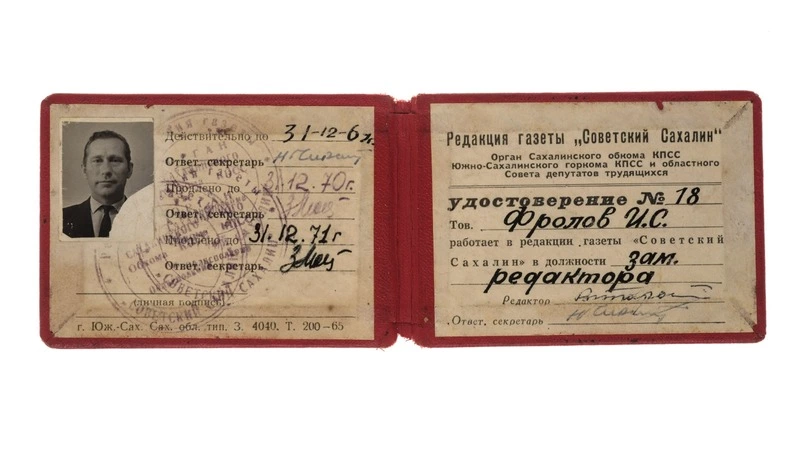 Действительно по 31-12-6
Ответ. секретарь
Продлено до 31.12.70г.
Ответ. секретарь
Продлено до 31.12.71г
Ответ. секретарь
(личная подпись)
г. Юж.-Сах. Сах. обл. тип. З. 4040. Т. 200—65
СОВЕТСКИЙ САХАЛИН
Редакция газеты „Советский Сахалин"
Орган Сахалинского обкома КПСС
Южно-Сахалинского горкома КПСС и областного
Совета депутатов трудящихся
удостоверение № 18
Тов. Фролов И.С.
работает в редакции газеты «Советский
Сахалин» в должности зам.
редактора
Редактор
Ответ. секретарь